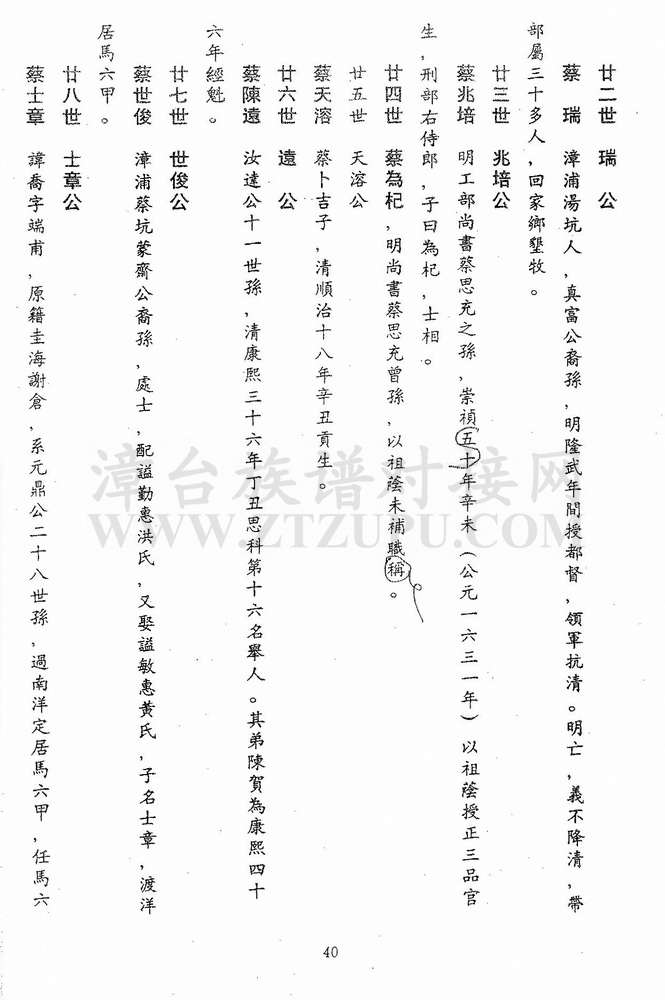 廿二世　瑞　公
蔡　瑞　漳浦湯坑人，真富公裔孫，明隆武年間授都督，領軍抗清。明亡，義不降清，帶
部屬三十多人，回家鄉墾牧。
廿三世　兆培公
蔡兆培　明工部尚書蔡思充之孫，崇禎五十年辛未（公元一六三一年）以祖蔭授正三品官
生，刑部右侍郎，子曰為杞，士相。
廿四世　蔡為杞，明尚書蔡思充曾孫，以祖蔭未補職稱。
廿五世　天溶公
蔡天溶　蔡卜吉子，清順治十八年辛丑貢生。
廿六世　遠　公
蔡陳遠　汝達公十一世孫，清康熙三十六年丁丑思科第十六名舉人。其弟陳賀為康熙四十
六年經魁。
廿七世　世俊公
蔡世俊　漳浦蔡坑蒙齋公裔孫，處士，配謚勤惠洪氏，又娶謚敏惠黃氏，子名士章，渡洋
居馬六甲。
廿八世　士章公
蔡士章　諱喬字端甫，原籍圭海謝倉，系元鼎公二十八世孫，過南洋定居馬六甲，任馬六
漳台族谱对接网
WWW.ZTZUPU.COM
40